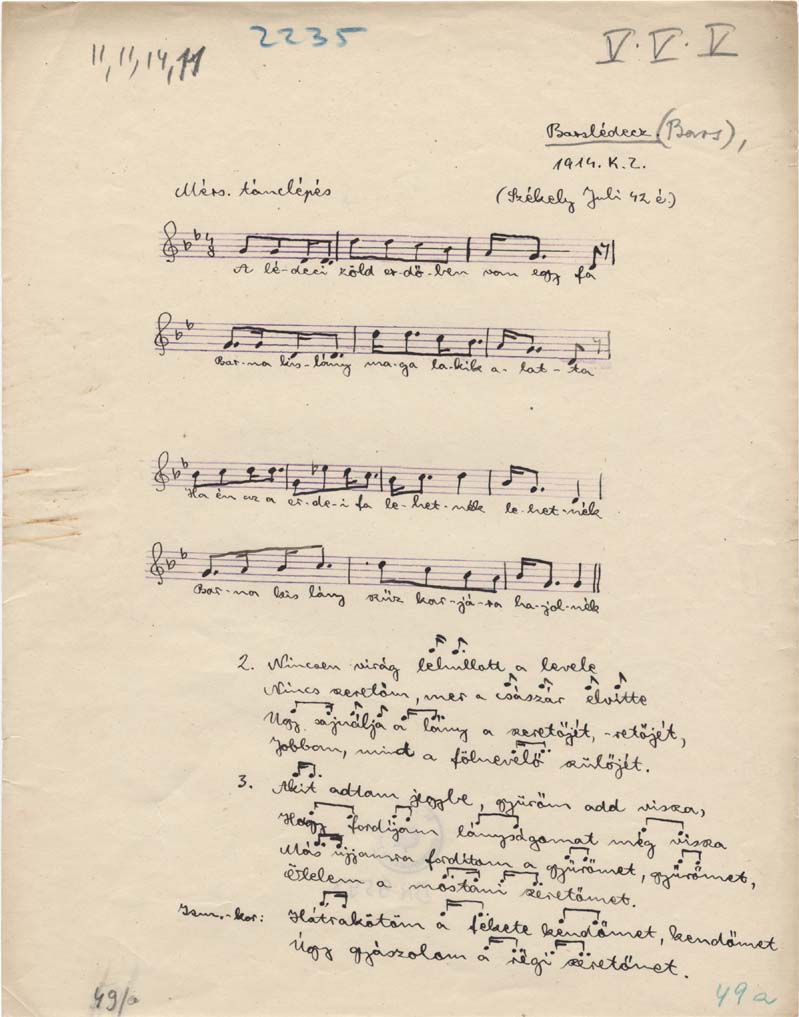 2235
11, 11, 14, 11
V. V. V
Barslédecz. (Bars),
1914. K. Z.
Mérs. tánclépés
(Székely Juli 42 é.)
A lé-deci zöld er-dő-ben van egy fa
Bar-na kis-lány ma-ga la-kik a-lat-ta
Ha én az a er-de-i fa le-het-nék le-het-nék
Bar-na kis lány szűz kar-já-ra ha-jol-nék
2. Nincsen virág lehullott a levele
Nincs szeretőm, mer a császár elvitte
Úgy sajnálja a lány a szeretőjét, -retőjét,
Jobban, mint a fölnevelő szülőjét.
3. Akit adtam jegybe, gyűrőm add vissza,
Hogy fordíjam lányságomat még vissza
Más újjamra fordítom a gyűrőmet, gyűrőmet,
a mostani szeretőmet.
Ism.-kor: Hátrakötöm a fekete kendőmet, kendőmet
Úgy gyászolom a régi szeretőmet.
49/a
49a